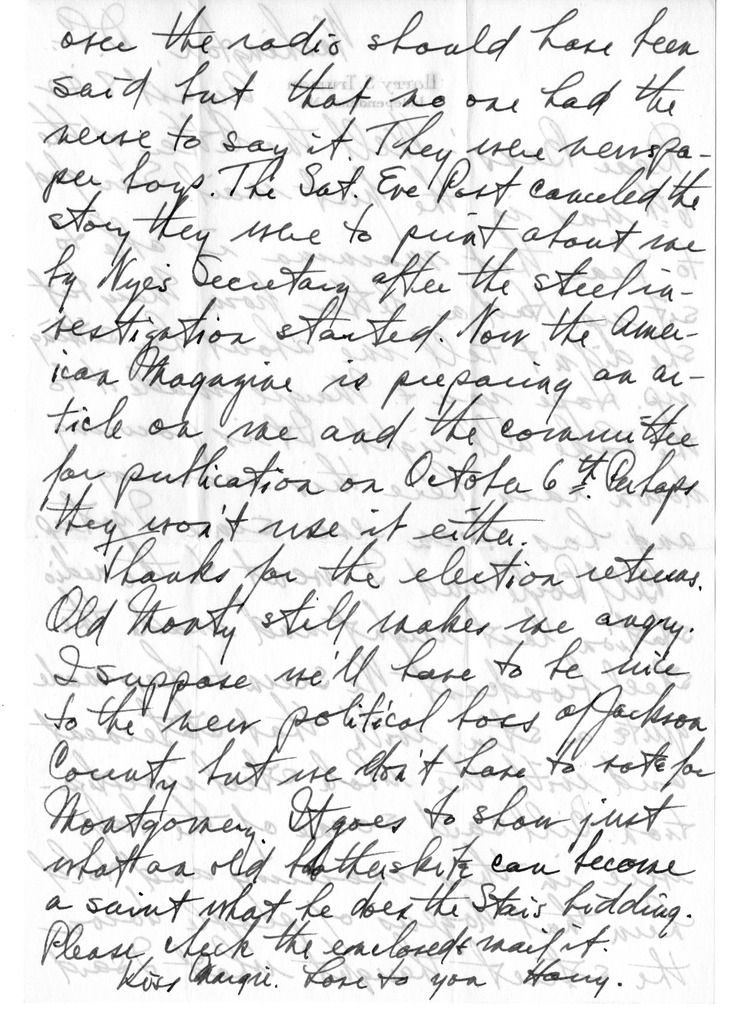 over the radio should have been
said but that no one had the
nerve to say it. They were newspa-
per boys. The Sat. Eve Post canceled the
story they were to print about me
by Nye's Secretary after the steel in-
vestigation started. Now the Amer-
ican Magazine is preparing an ar-
ticle on me and the committee
for publication on October 6th. Perhaps
they won't use it either.
Thanks for the election returns.
Old Monty still makes me angry.
I suppose we'll have to be nice
to the new political boss of Jackson
County but we don't have to vote for
Montgomery. It goes to show just
what an old blatherskite can become
a saint what he does the Star's bidding.
Please check the enclosed & mail it.
Kiss Margie. Love to you Harry.